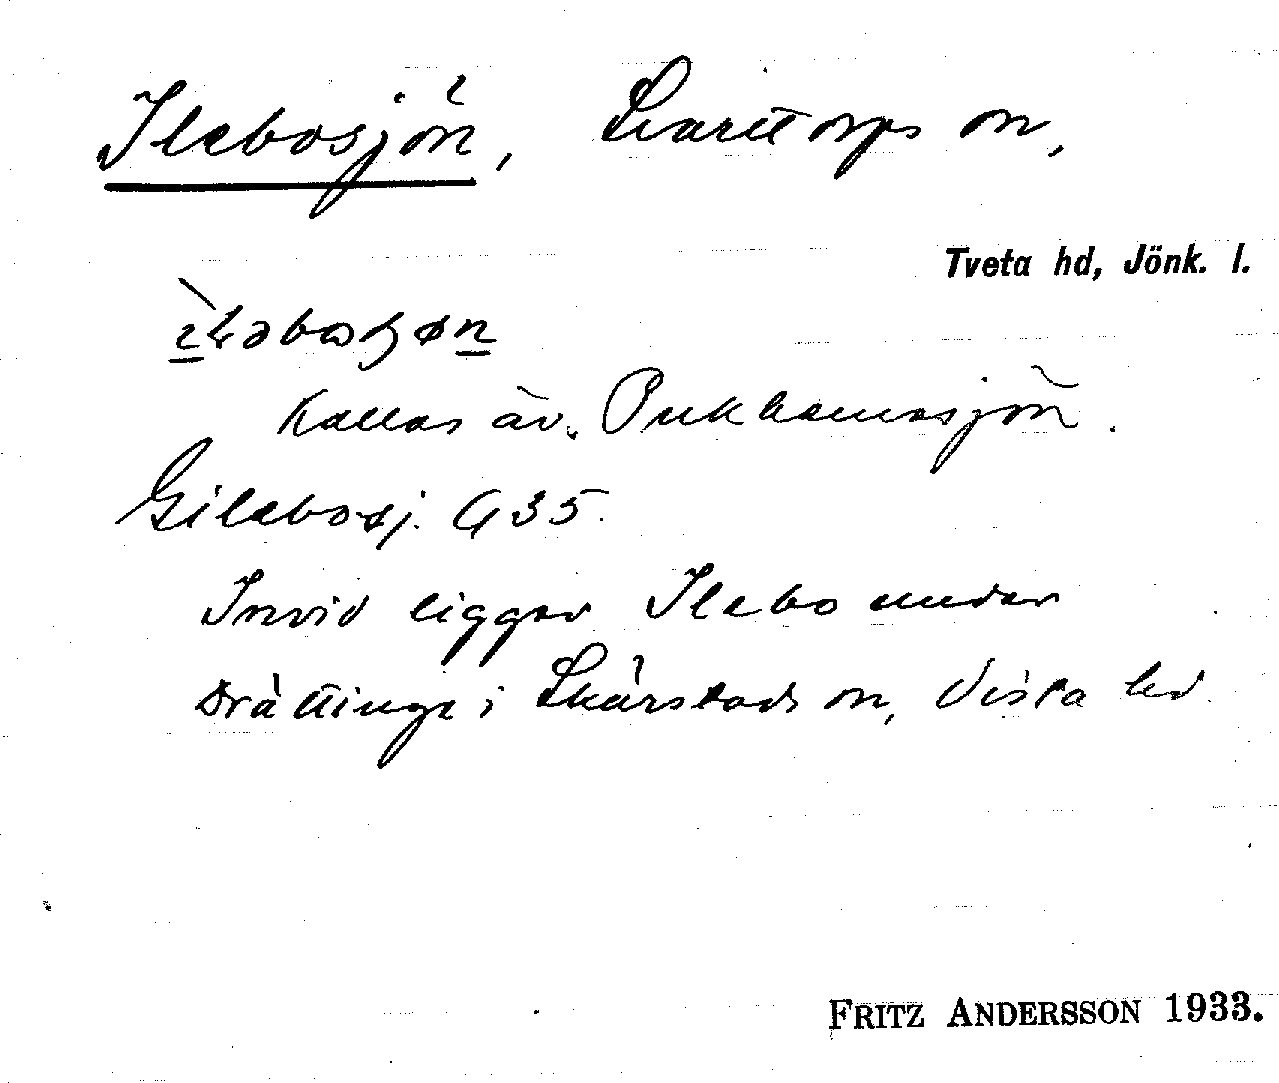 Ilebosjön, Svarttorps sn,
Tveta hd, Jönk. l.
Kallas äv. Pukhemasjön.
Gilebosj. G 35.
Invid ligger Ilebo under
Drättinge i Skärstads sn, Vista hd
FRITZ ANDERSSON 1933.